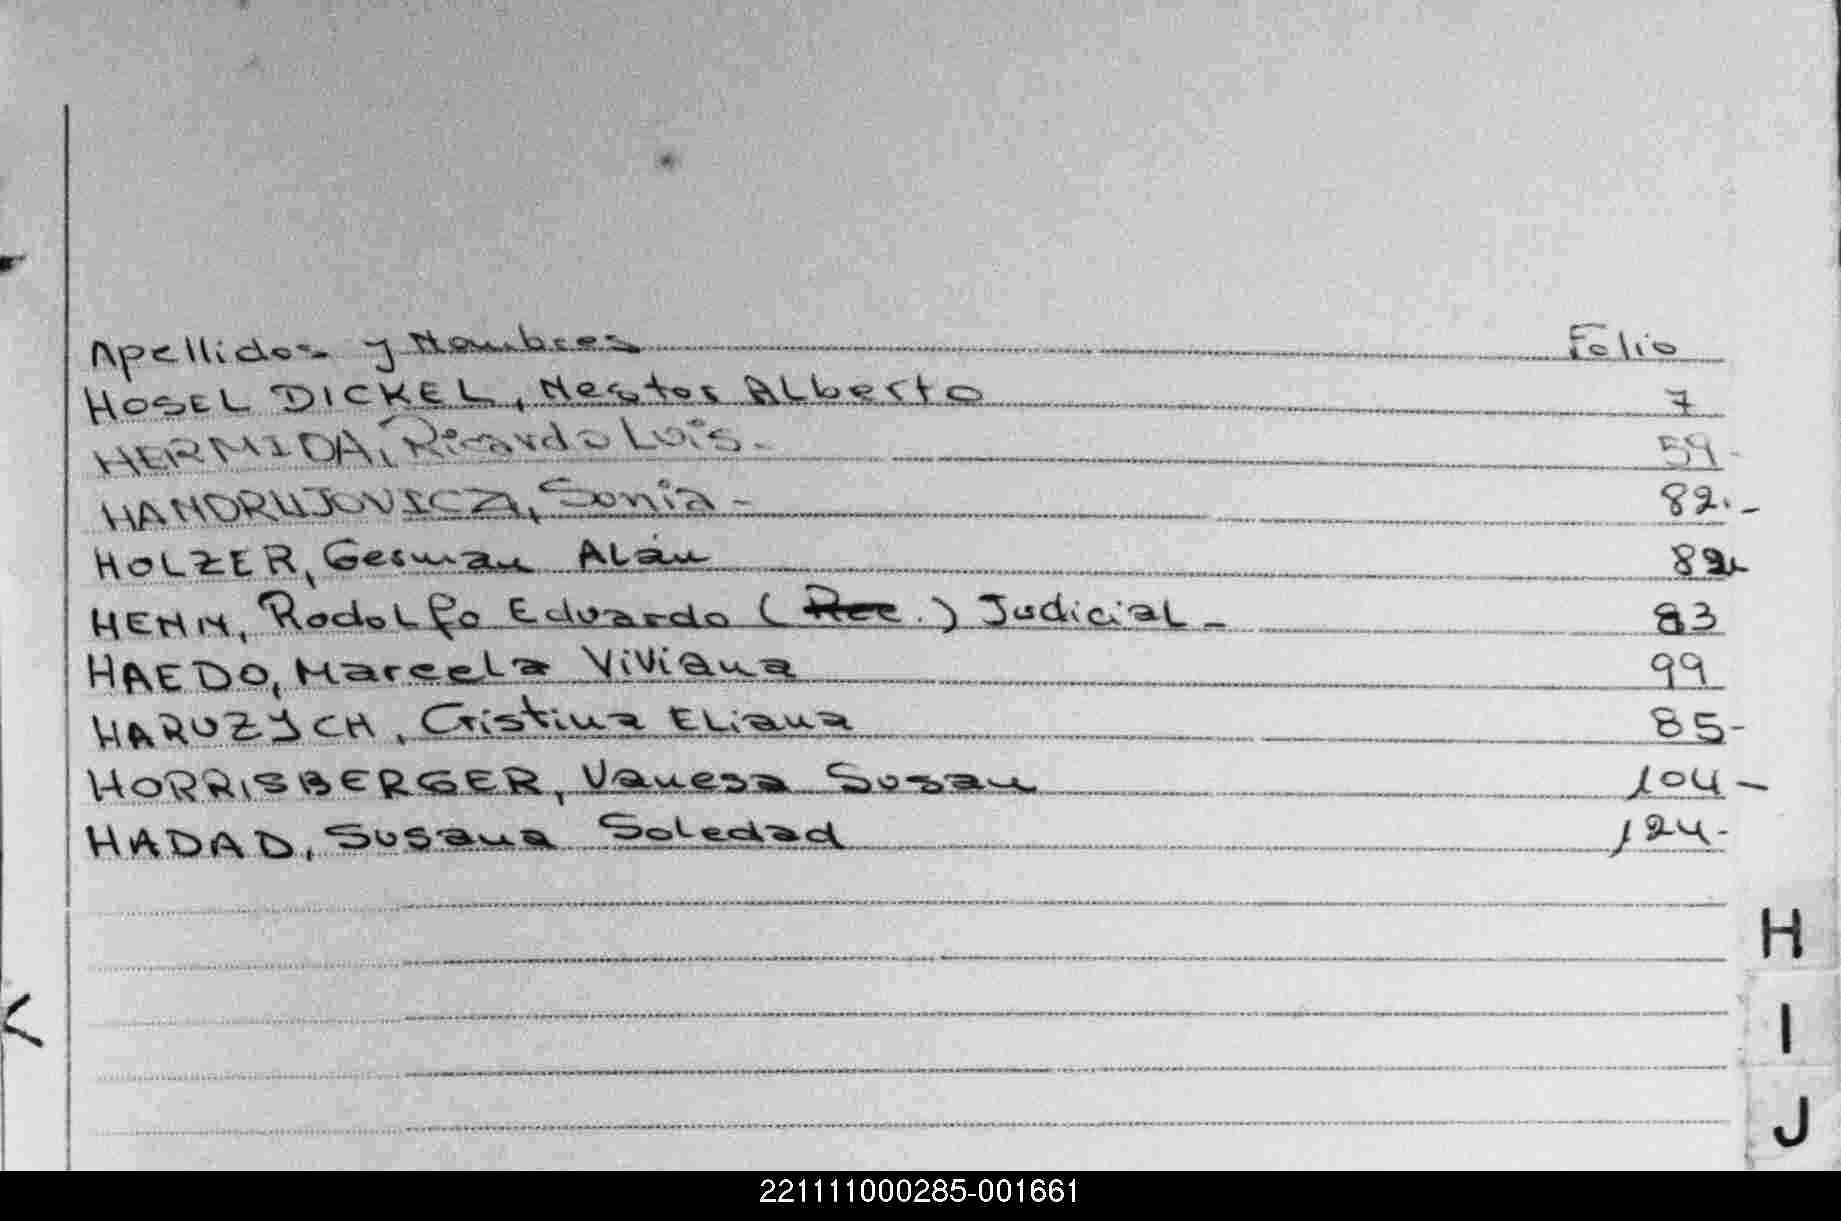 Apellidos y Nombres Folio
HOSEL DICKEL, Nestor Alberto 7
HERMIDA, Ricardo Luis.- 59-
HANDRUJOVICZ, Sonia - 82.-
HOLZER, German Alán 82
HENN, Rodolfo Eduardo (Rec.) Judicial - 83
HAEDO, Marcela Viviana 99
HARUZYCH, Cristina Eliana 85-
HORRISBERGER, Vanesa Susan 104-
HADAD, Susana Soledad 124-
H
I
J
221111000285-001661